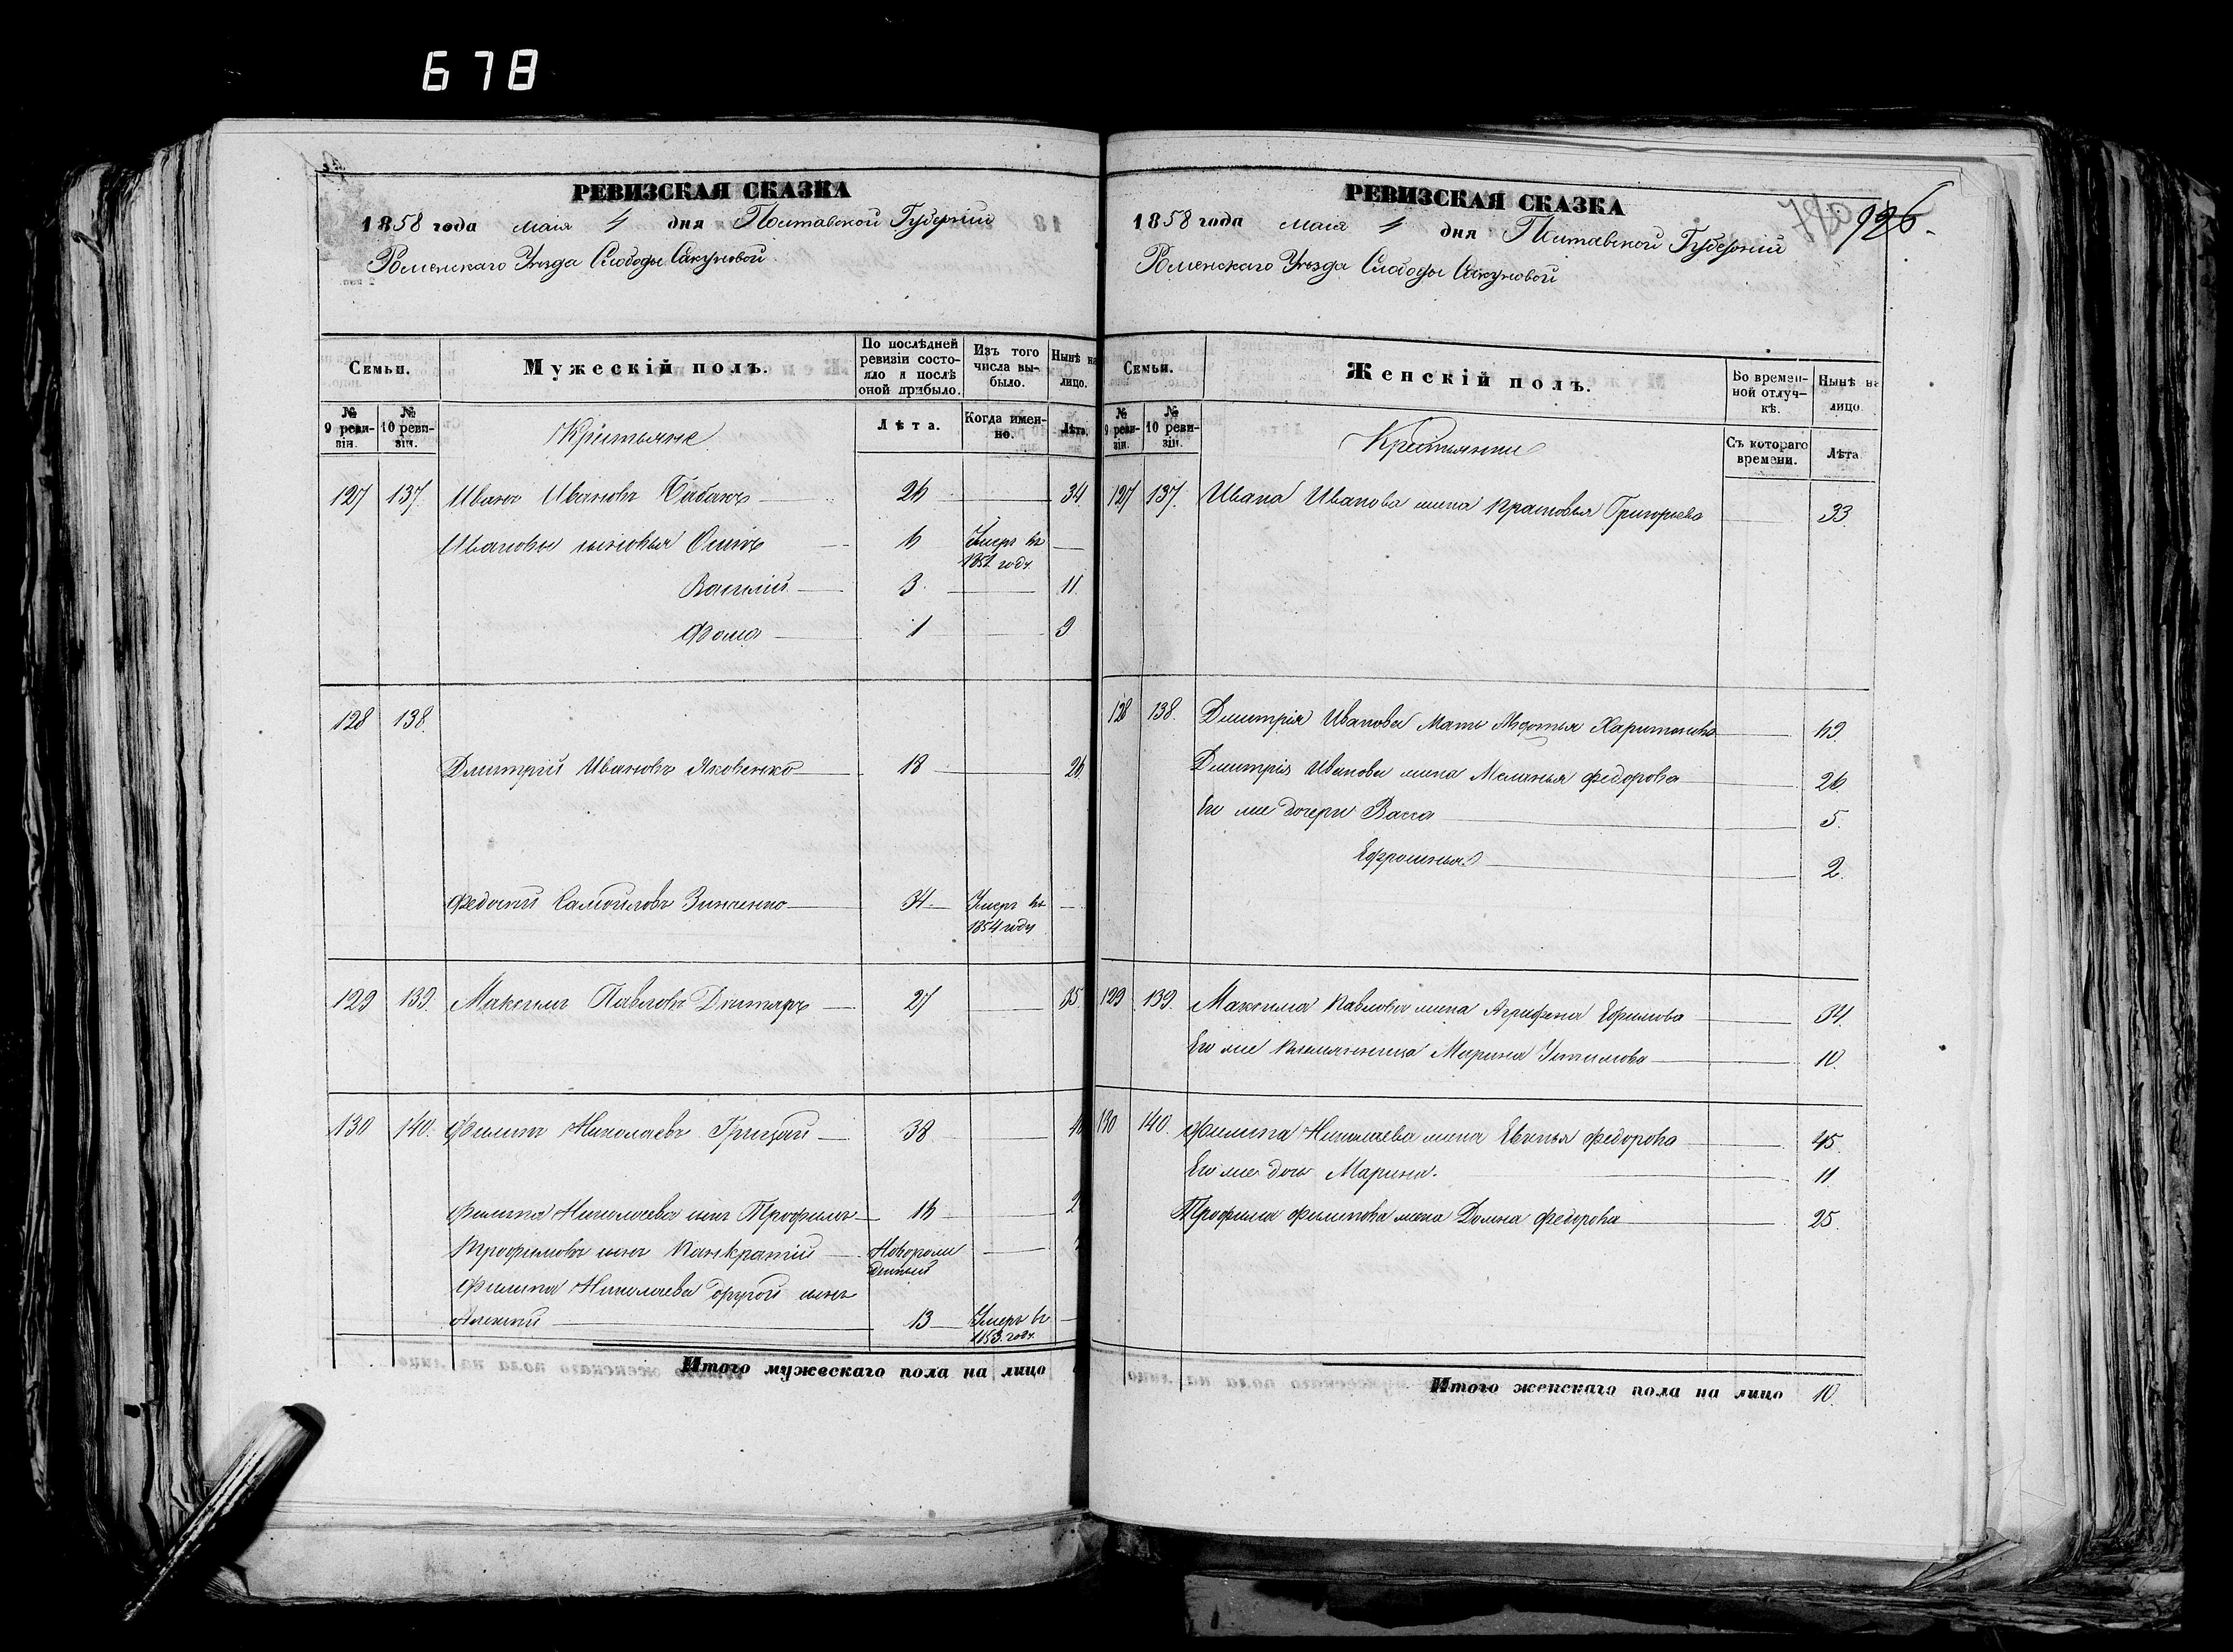 678
РЕВИЗСКАЯ СКАЗКА
1858 года маія 4 дня Полтавской Губерніи
Роменскаго Уезда Слободы Сакуновой
Семьи.
Мужескій полъ.
По послѣдней ревизіи состояло и послѣ оной прибыло.
Изъ того числа выбыло.
Нынѣ на лицо.
№ 9 ревизіи.
№ 10 ревизіи.
Крестьяне
Лѣта.
Когда именно.
Лѣта.
127 137. Иванъ Ивановъ Бабакъ 26 34.
Ивановы сыновья Осипъ 6 Умеръ въ
году
Василий 3. 11.
Фома 1 9
128 138.
Дмитрій Ивановъ Яковенко 18 26
Федосий Самойловъ Зинченко 34 Умеръ въ
1854 году
129 139. Максимъ Павловъ 27 35
130 140. Филипъ Николаевъ Грицай 38
Филипа Николаева сынъ Трофимъ 16
Трофимовъ сынъ Панкратій Новорож
денный
Филипа Николаева другой сынъ
Алексей 13 Умеръ въ
1853 году.
Итого мужескаго пола на лицо
РЕВИЗСКАЯ СКАЗКА
926.
1858 года маія 4 дня Полтавской Губерніи
Роменскаго Уезда Слободы Сакуновой
Семьи.
Женскій полъ.
Во временной отлучкѣ.
Нынѣ на лицо
№ 9 ревизіи.
№ 10 ревизіи.
Крестьянки
Съ котораго времени.
Лѣта
127 137. Ивана Иванова жена Прасковья Григорьева 33.
128 138. Дмитрія Иванова Мать Авдотья Харитонова 69.
Дмитрія Иванова жена Меланья Федорова 26.
Его же дочери Васса 5.
Ефросинья 2.
129 139. Максима Павлова жена Агрифена Ефимова 34.
Его же племянница Марина 10.
130 140. Филипа Николаева жена Евгенья Федорова 45.
Его же дочь Марина. 11
Трофима Филипова жена Домна Федорова 25.
Итого женскаго пола на лицо 10.